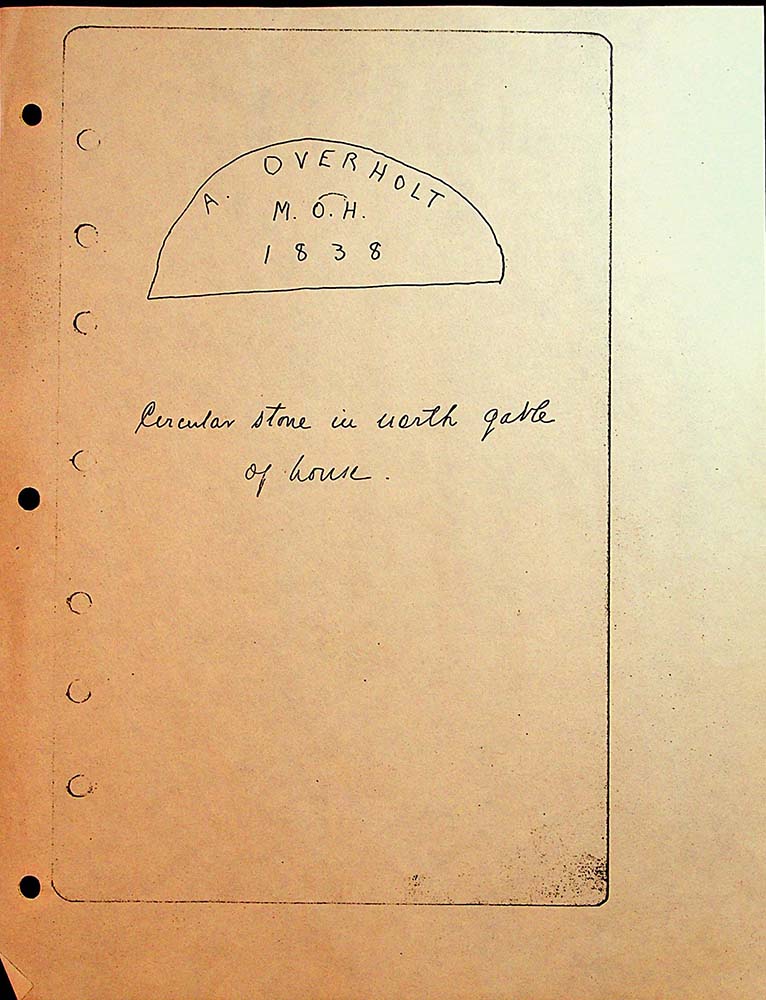 A. OVERHOLT
M. O. H.
1838
Circular stone in north gable
of house.